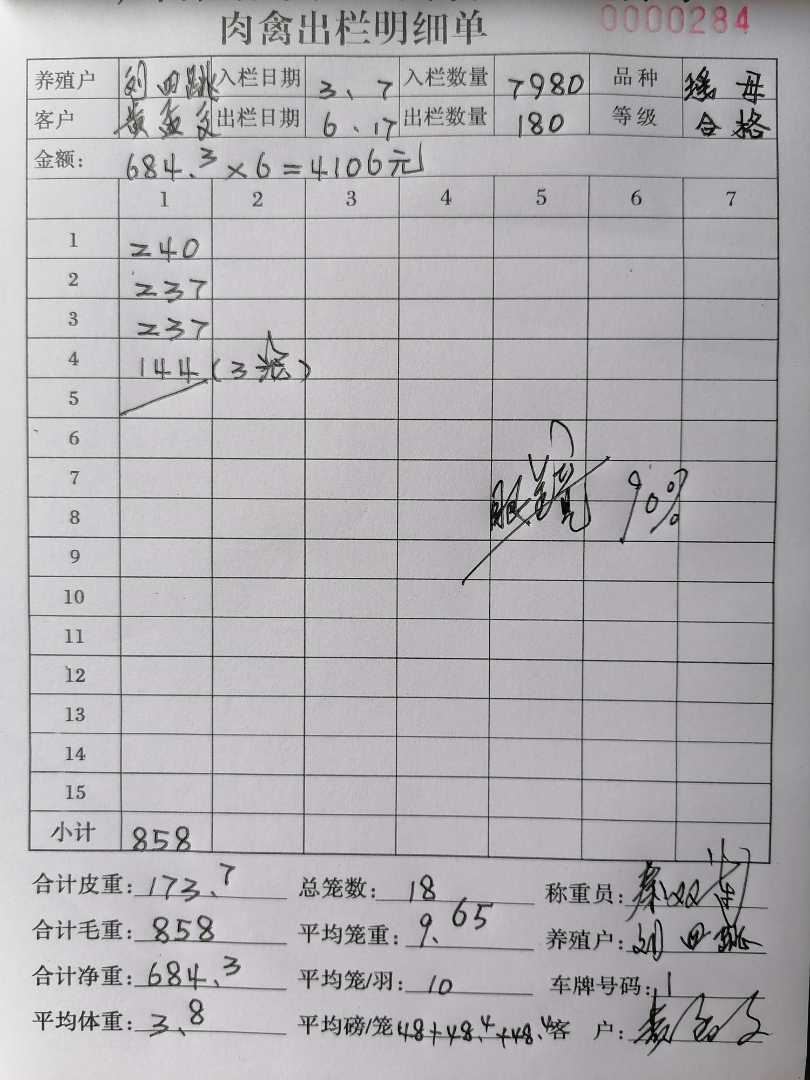 肉禽出栏明细单 0000284
养殖户 刘四跳 入栏日期 3、7 入栏数量 7980 品种 瑶母
客户 黄孟 出栏日期 6、17 出栏数量 180 等级 合格
金额: 684.3×6=4106元
1 2 3 4 5 6 7
1 240
2 237
3 237
4 144(3笼)
5
6
7
8 眼镜 90%
9
10
11
12
13
14
15
小计 858
合计皮重: 173.7 总笼数: 18 称重员:
合计毛重: 858 平均笼重: 9.65 养殖户: 刘四跳
合计净重: 684.3 平均笼/羽: 10 车牌号码: 1
平均体重: 3.8 平均磅/笼 48+48.4+48.4 客户: 黄